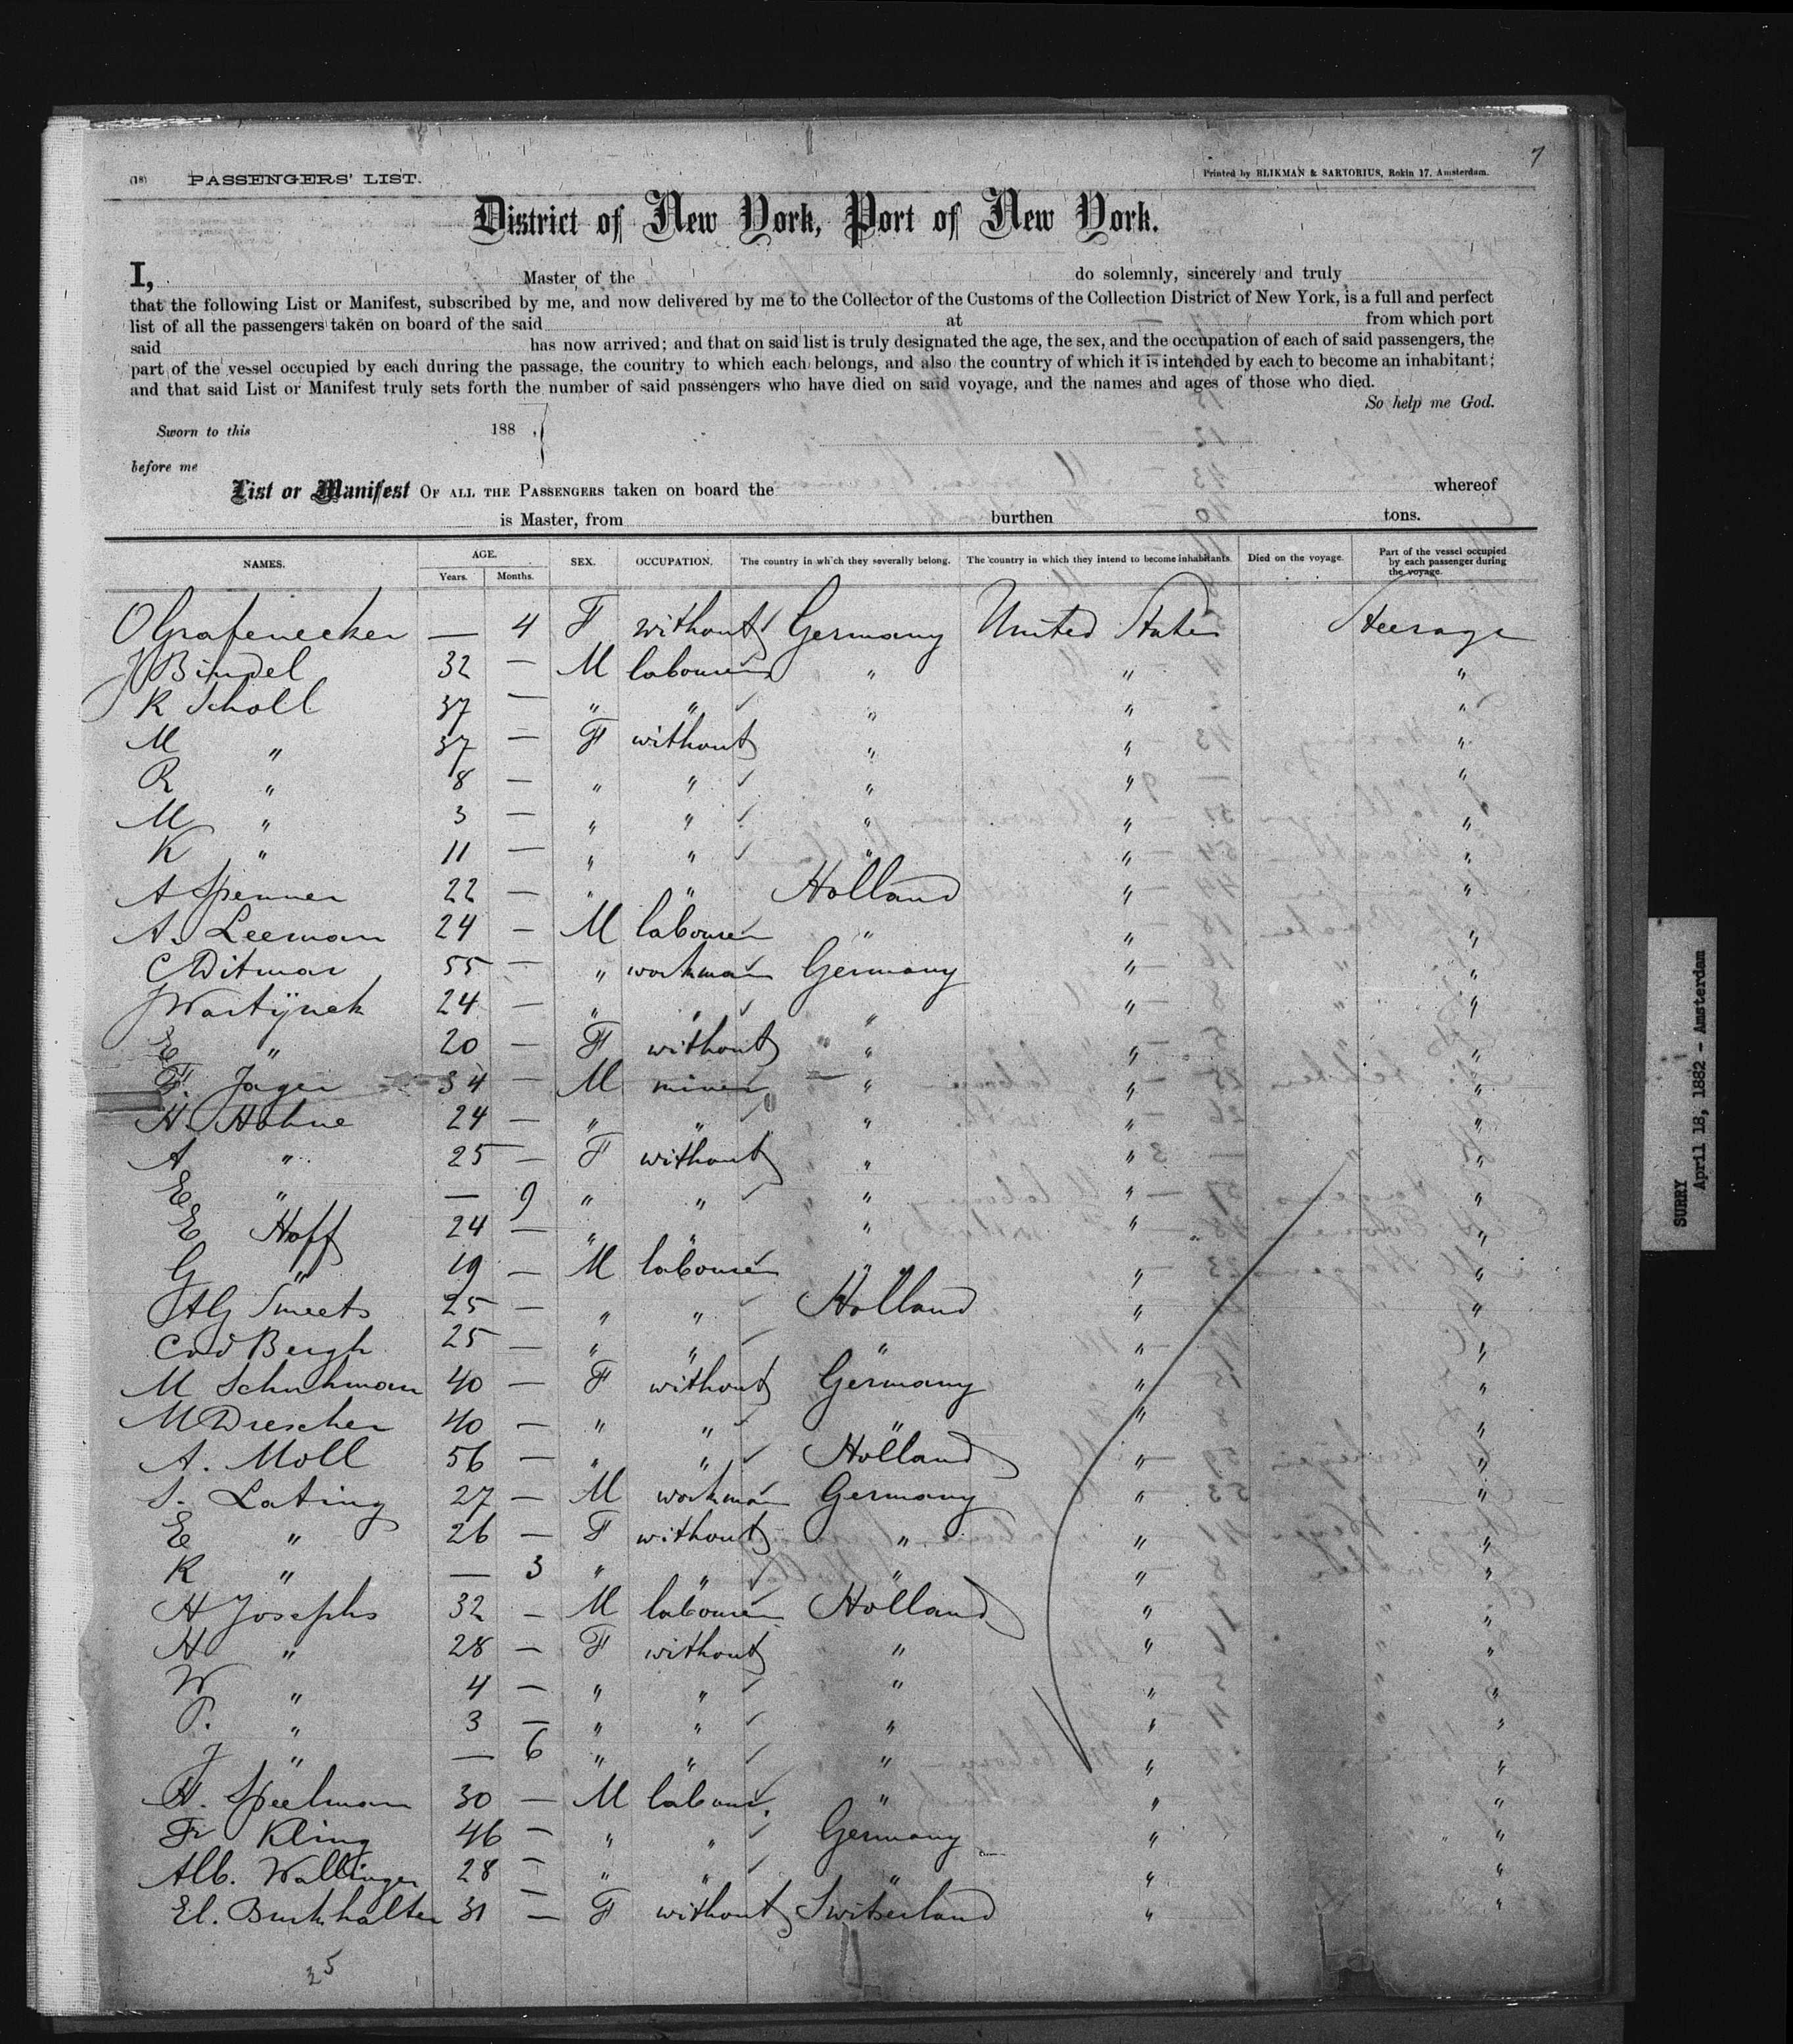 7
(18) PASSENGERS' LIST. Printed by BLIKMAN & SARTORIUS, Rokin 17, Amsterdam.
District of New York, Port of New York.
I, Master of the do solemnly, sincerely and truly
that the following List or Manifest, subscribed by me, and now delivered by me to the Collector of the Customs of the Collection District of New York, is a full and perfect
list of all the passengers taken on board of the said at from which port
said has now arrived; and that on said list is truly designated the age, the sex, and the occupation of each of said passengers, the
part of the vessel occupied by each during the passage, the country to which each belongs, and also the country of which it is intended by each to become an inhabitant;
and that said List or Manifest truly sets forth the number of said passengers who have died on said voyage, and the names and ages of those who died.
So help me God.
Sworn to this 188 ,
before me
List or Manifest OF ALL THE PASSENGERS taken on board the whereof
is Master, from burthen tons.
NAMES. AGE. Years. Months. SEX. OCCUPATION. The country in which they severally belong. The country in which they intend to become inhabitants. Died on the voyage. Part of the vessel occupied by each passenger during the voyage.
O Grafenecker — 4 F without Germany United States Steerage
J Bindel 32 — M labourer " " "
K Scholl 37 — " " " " "
M " 37 — F without " " "
R " 8 — " " " " "
M " 3 — " " " " "
K " 11 — " " " " "
A Spenner 22 — " " Holland " "
A. Leeman 24 — M labourer " " "
C Ditmar 55 — " workman Germany " "
J Wartÿnek 24 — " " " " "
E " 20 — F without " " "
F. Jager 34 — M miner " " "
H. Hohne 24 — " " " " "
A " 25 — F without " " "
E " — 9 " " " " "
E Hoff 24 — " " " " "
G " 19 — M labourer " " "
AG Smeets 25 — " " Holland " "
C v d Bergh 25 — " " " " "
M Schuhmann 40 — F without Germany " "
M Drescher 40 — " " " " "
A. Moll 56 — " " Holland " "
S. Lating 27 — M workman Germany " "
E " 26 — F without " " "
K " — 3 " " " " "
H Josephs 32 — M labourer Holland " "
H " 28 — F without " " "
W " 4 — " " " " "
P. " 3 — " " " " "
J " — 6 " " " " "
H. Speelman 30 — M labour. " " "
Fr Kling 46 — " " Germany " "
Alb. Wallinger 28 — " " " " "
El. Burkhalter 31 — F without Switserland " "
35
SURRY
April 18, 1882 - Amsterdam